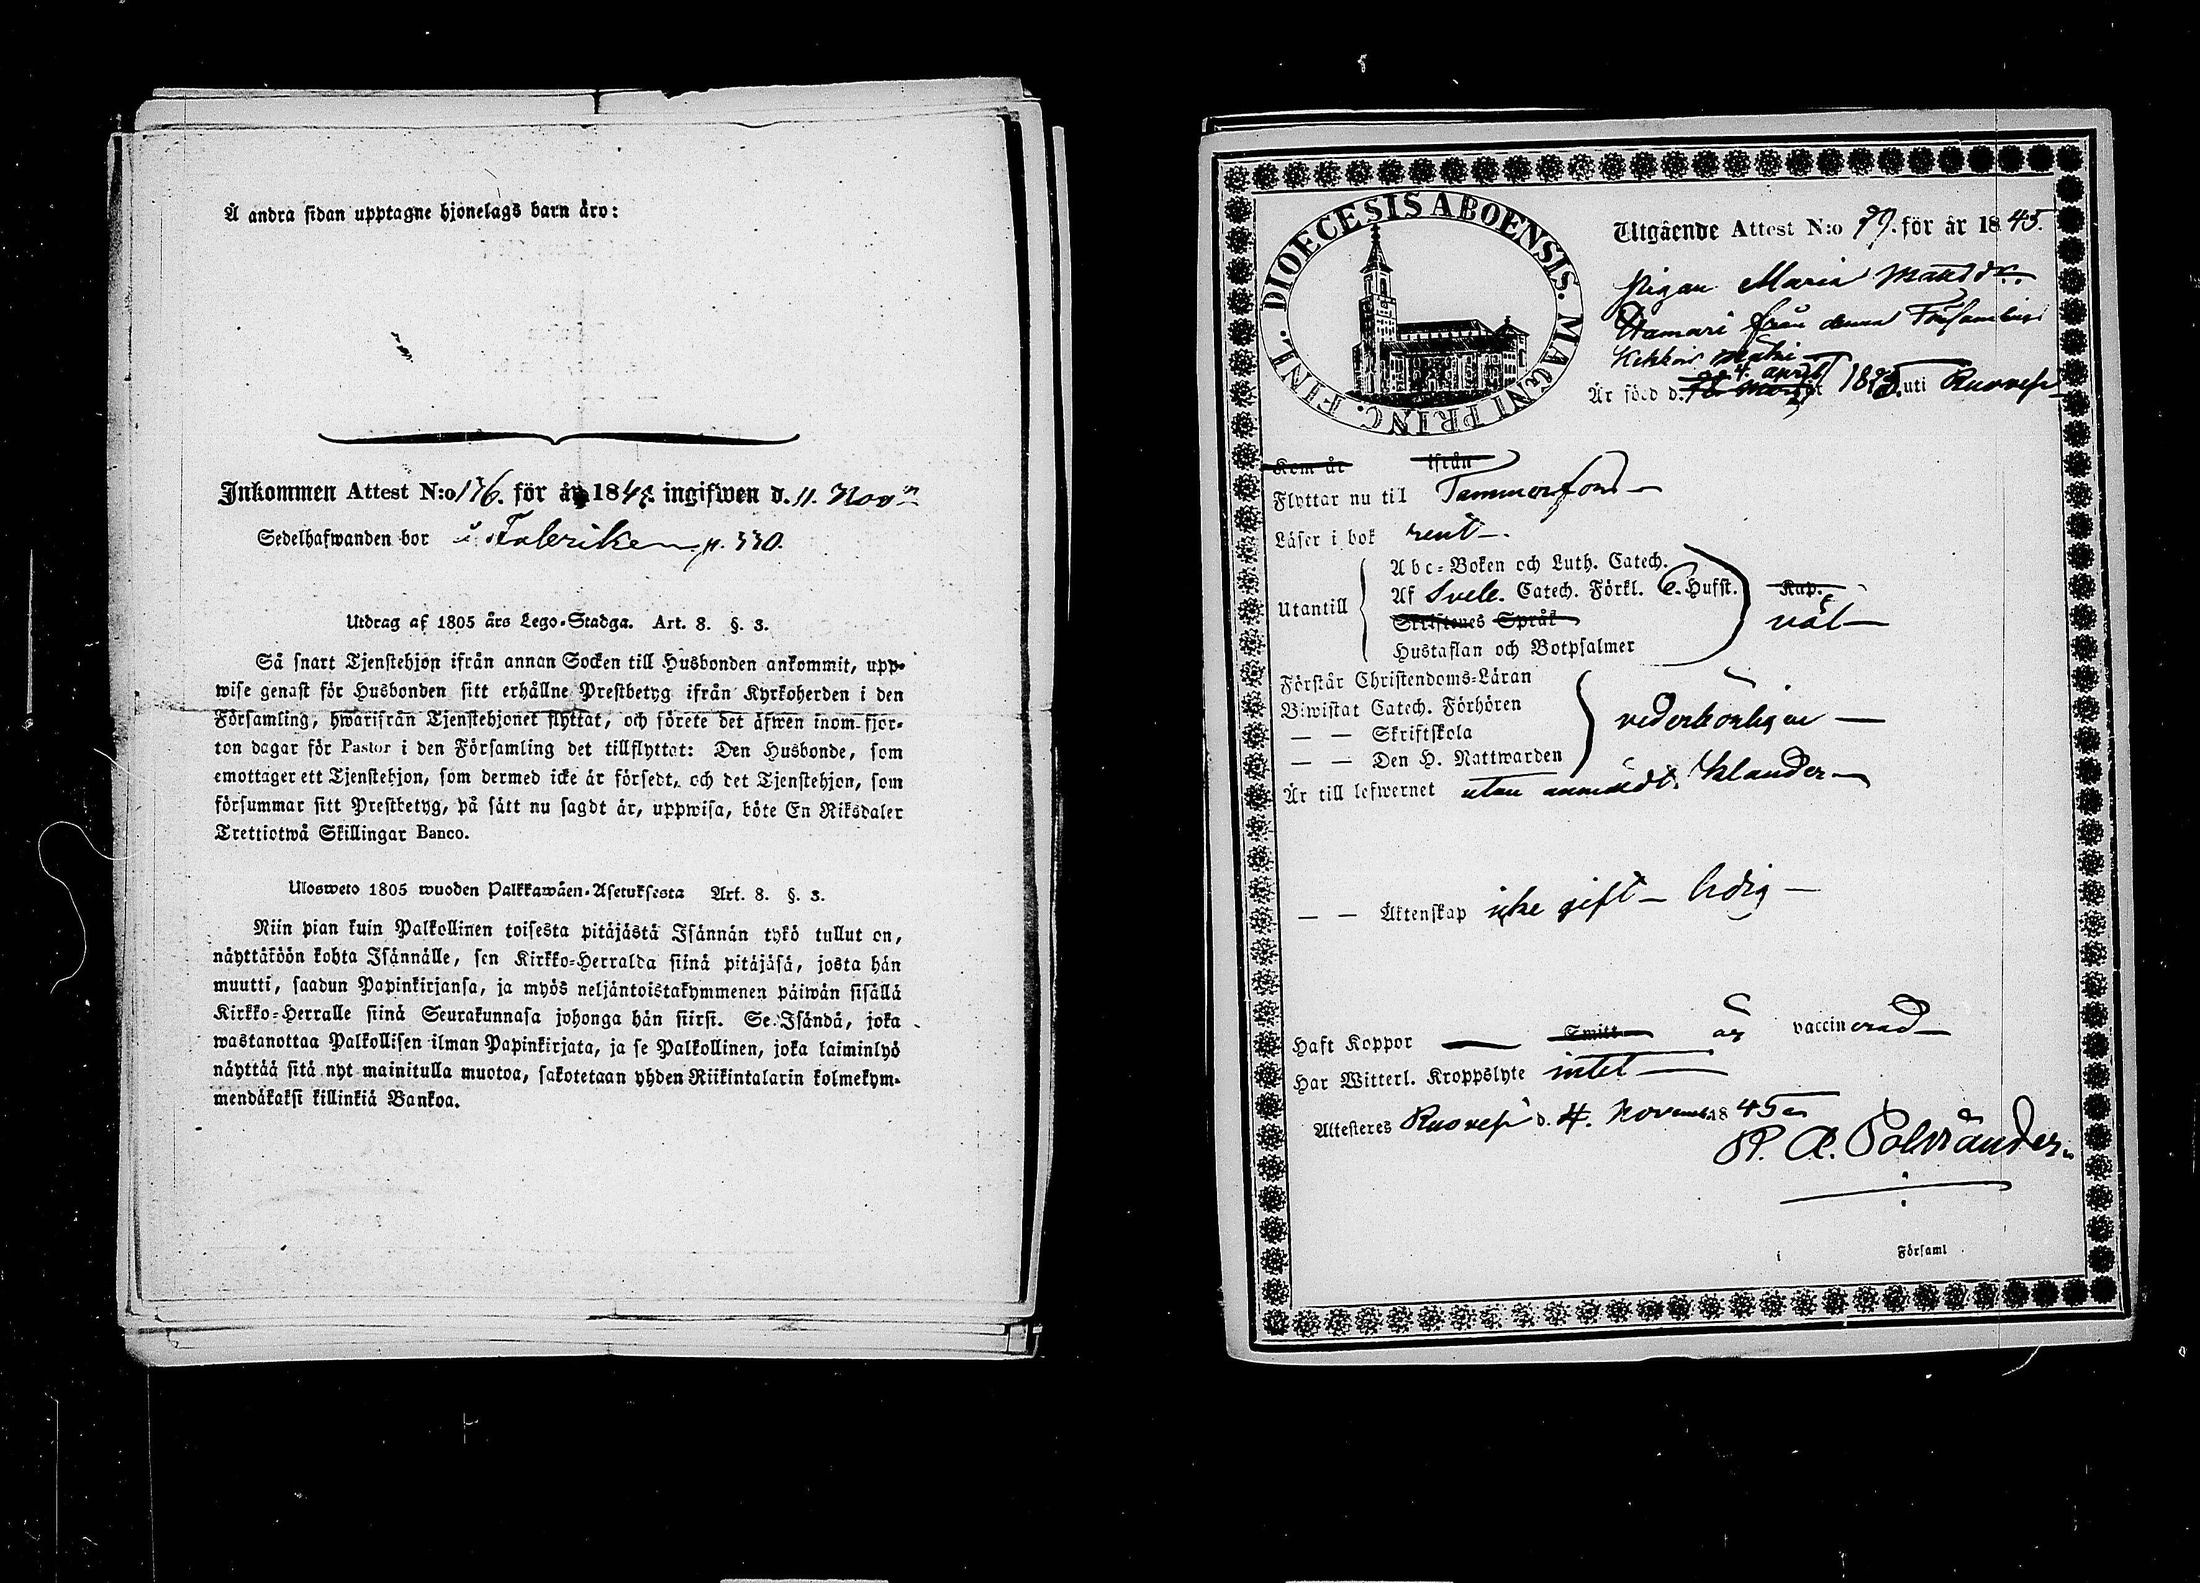 Å andra sidan upptagne hjonelags barn äro:
Inkommen Attest N:o 176. för år 1845. ingifwen d. 11. Novr
Sedelhafwanden bor i Fabriken p. 330.
Utdrag af 1805 års Lego-Stadga. Art. 8. §. 3.
Så snart Tjenstehjon ifrån annan Socken till Husbonden ankommit, upp-
wise genast för Husbonden sitt erhållne Prestbetyg ifrån Kyrkoherden i den
Församling, hwarifrån Tjenstehjonet flyttat, och förete det äfwen inom fjor-
ton dagar för Pastor i den Församling det tillflyttat: Den Husbonde, som
emottager ett Tjenstehjon, som dermed icke är försedt, och det Tjenstehjon, som
försummar sitt Prestbetyg, på sätt nu sagdt är, uppwisa, böte En Riksdaler
Trettiotwå Skillingar Banco.
Ulosweto 1805 wuoden Palkkawäen-Asetuksesta Art. 8. §. 3.
Niin pian kuin Palkollinen toisesta pitäjästä Isännän tykö tullut on,
näyttäköön kohta Isännälle, sen Kirkko-Herralda siinä pitäjäsä, josta hän
muutti, saadun Papinkirjansa, ja myös neljäntoistakymmenen päiwän sisällä
Kirkko-Herralle siinä Seurakunnasa johonga hän siirsi. Se Isändä, joka
wastanottaa Palkollisen ilman Papinkirjata, ja se Palkollinen, joka laiminlyö
näyttää sitä nyt mainitulla muotoa, sakotetaan yhden Riikintalarin kolmekym-
mendäkaksi killinkiä Bankoa.
DIOECESIS ABOENSIS. MAGNI PRINC. FINL.
Utgående Attest N:o 79. för år 1845.
Pigan Maria Mattsdr
från denna Församling
Är född d. 4. april 1825. uti Ruovesi
Kom år ifrån
Flyttar nu til Tammerfors
Läser i bok rent
Utantill
Abc-Boken och Luth. Catech.
Af Sveb. Catech. Förkl. 6. Hufst. Kap.
Skriftenes Språk väl
Hustaflan och Botpsalmer
Förstår Christendoms-Läran
Biwistat Catech. Förhören
— — Skriftskola vederbörligen
— — Den H. Nattwarden
Är till lefwernet utan anmäldt klander
— — Äktenskap icke gift – ledig
Haft Koppor — Smitt är vaccinerad
Har Witterl. Kroppslyte intet
Attesteres Ruovesi d. 4. Novemb. 1845
i Församl